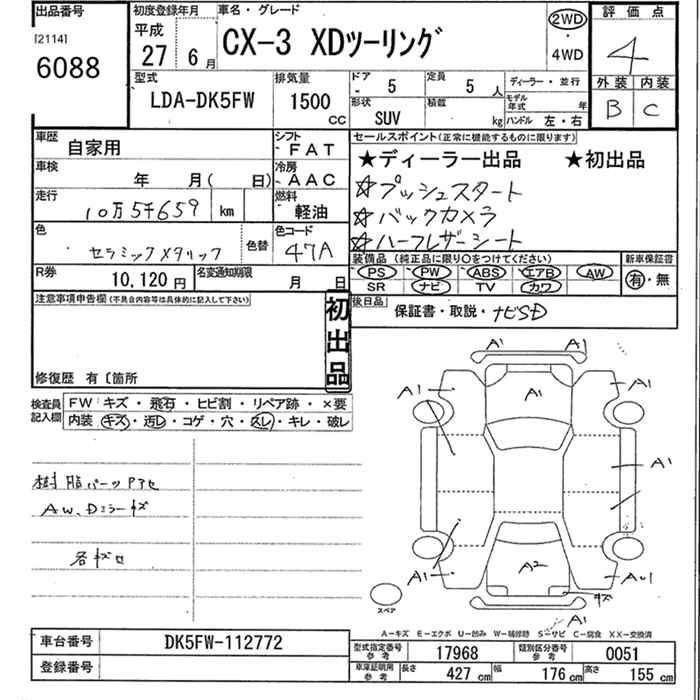 出品番号 初度登録年月 車名・グレード 2WD 評価点
[2114] 平成 ・
6088 27 6月 CX-3 XDツーリング 4WD 4
型式 排気量 ドア 定員 ディーラー・並行 外装 内装
LDA-DK5FW 1500 cc - 5 5人 モデル年式 年 B C
形状 積載
SUV kg ハンドル 左・右
車歴 自家用 シフト FAT セールスポイント(正常に機能するものに限ります)
車検 年 月( 日) 冷房 AAC ★ディーラー出品 ★初出品
走行 10万5千659 km 燃料 軽油 ☆プッシュスタート
☆バックカメラ
色 セラミックメタリック 色替 色コード 47A ☆ハーフレザーシート
装備品(純正品に限り○をつけてください) 新車保証書
R券 10,120円 名変通知期限 月 日 PS PW ABS エアB AW 有・無
SR ナビ TV カワ
注意事項申告欄(不具合内容等は具体的に記入して下さい) 初出品 後日品 保証書・取説・ナビSD
修復歴 有〔箇所
検査員記入欄 FW キズ・飛石・ヒビ割・リペア跡・×要
内装 キズ・汚レ・コゲ・穴・スレ・キレ・破レ
樹脂パーツアセ
AW、Dミラーキズ
各キズ
A1 A1
A1 A1 A1
A1
A1 A2 AU1
キズ
スペア A1
A-キズ E-エクボ U-凹み W-補修跡 S-サビ C-腐食 XX-交換済
車台番号 DK5FW-112772 型式指定番号 参考 17968 類別区分番号 参考 0051
登録番号 車庫証明用 参考 長さ 427cm 幅 176cm 高さ 155cm